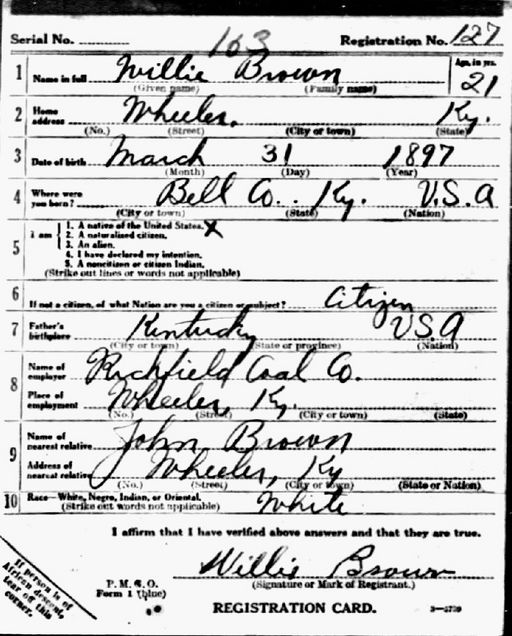 Serial No. 163 Registration No. 127
1 Name in full Willie Brown Age, in yrs. 21
(Given name) (Family name)
2 Home address Wheeler, Ky.
(No.) (Street) (City or town) (State)
3 Date of birth March 31 1897
(Month) (Day) (Year)
4 Where were you born? Bell Co. Ky. U.S.A
(City or town) (State) (Nation)
5 I am
1. A native of the United States. X
2. A naturalized citizen.
3. An alien.
4. I have declared my intention.
5. A noncitizen or citizen Indian.
(Strike out lines or words not applicable)
6 If not a citizen, of what Nation are you a citizen or subject? Citizen
7 Father's birthplace Kentucky USA
(City or town) (State or province) (Nation)
8 Name of employer Richfield Coal Co.
Place of employment Wheeler, Ky.
(No.) (Street) (City or town) (State)
9 Name of nearest relative John Brown
Address of nearest relative Wheeler, Ky
(No.) (Street) (City or town) (State or Nation)
10 Race—White, Negro, Indian, or Oriental. White
(Strike out words not applicable)
I affirm that I have verified above answers and that they are true.
Willie Brown
(Signature or Mark of Registrant.)
If person is of
African descent,
tear off this
corner.
P. M. G. O.
Form 1 (blue)
REGISTRATION CARD.